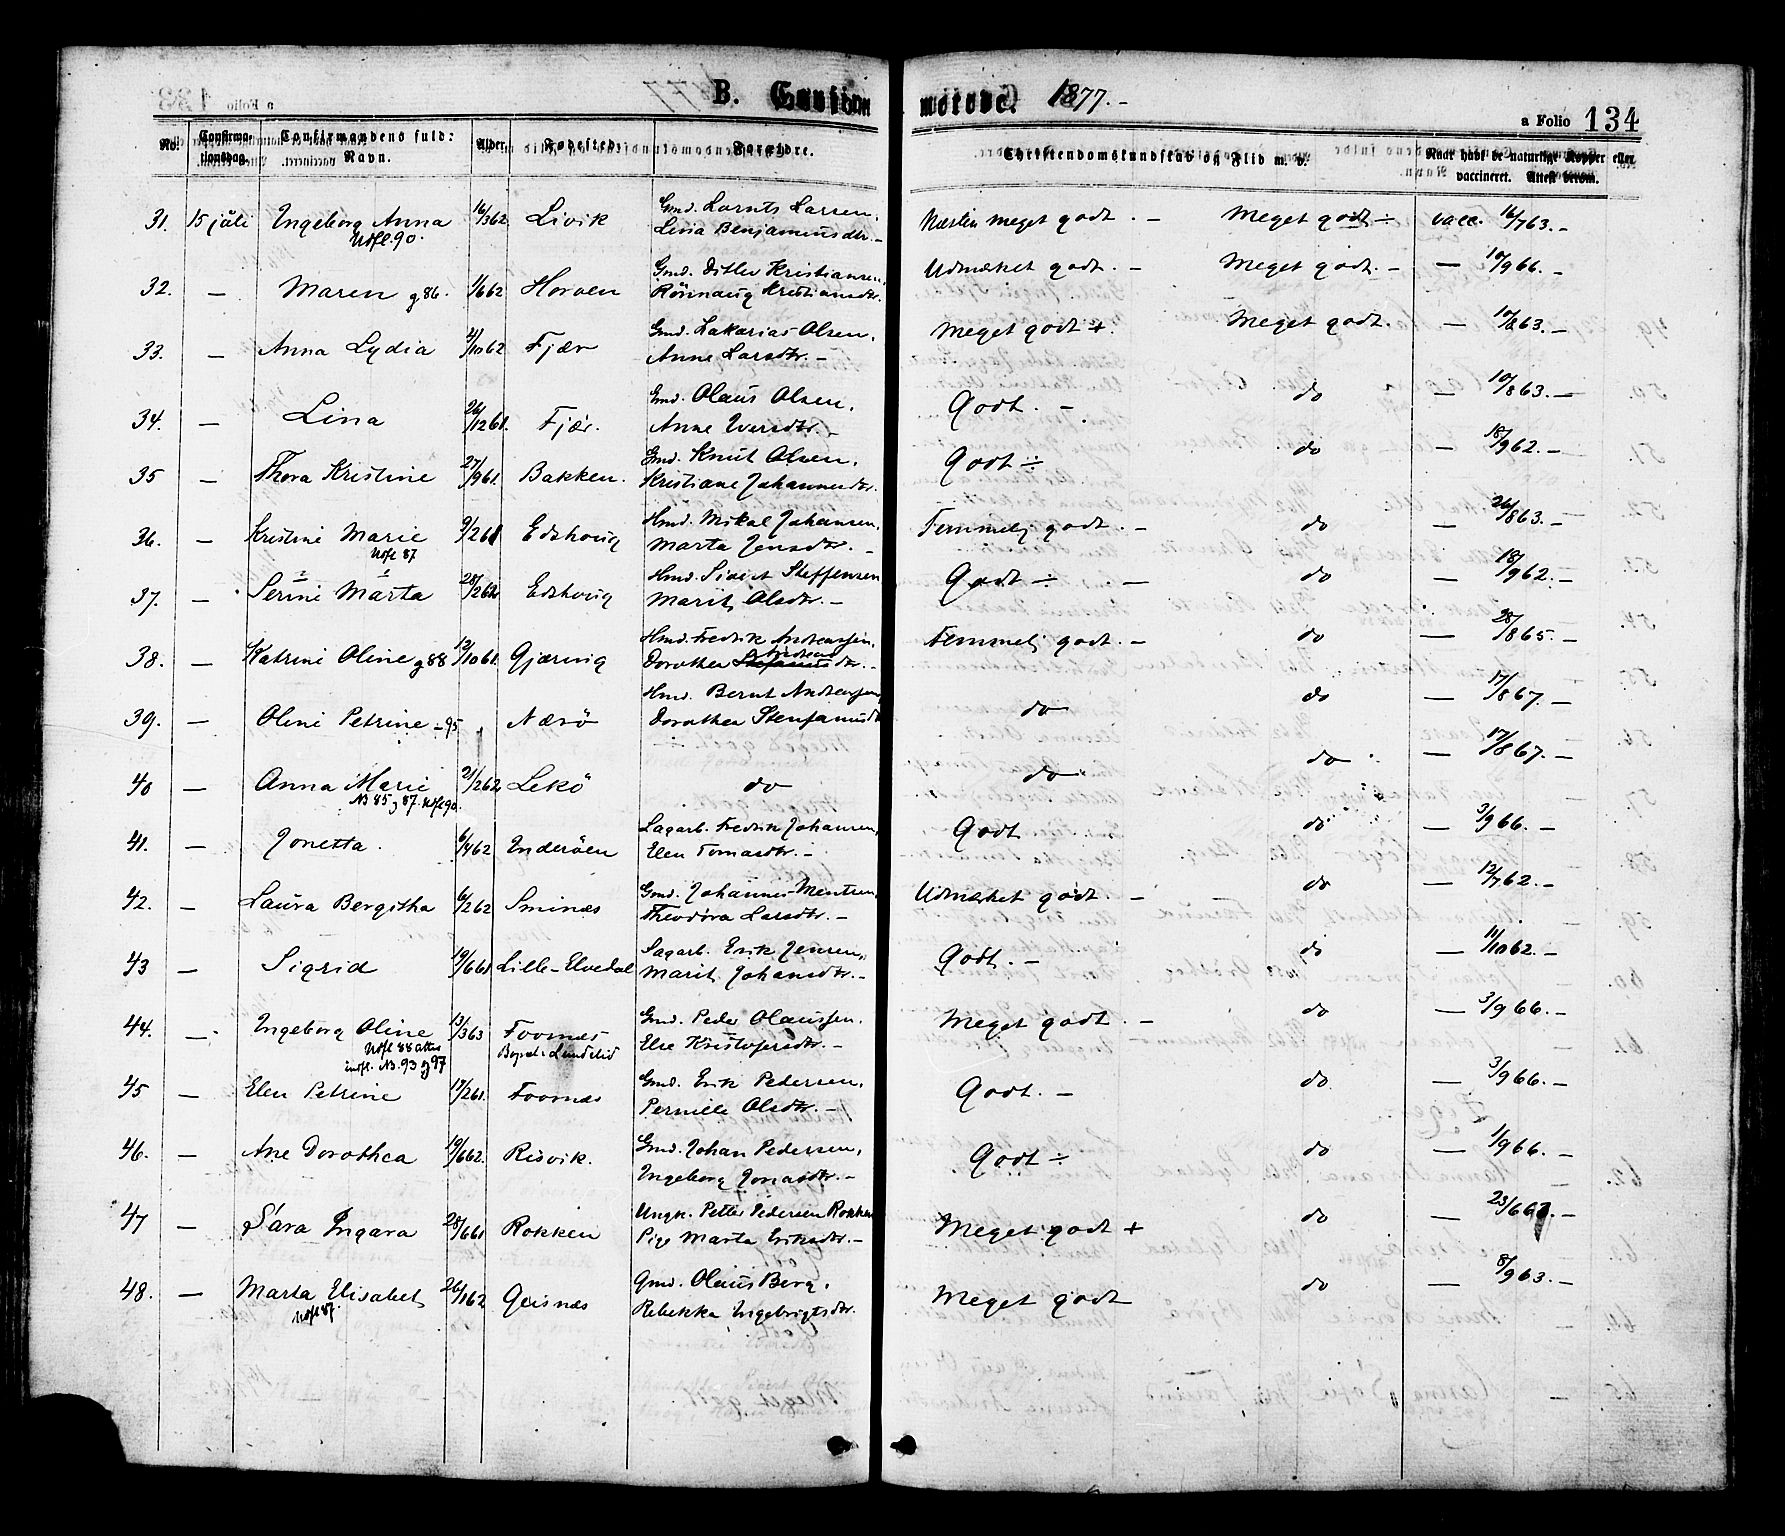 B. Confirmerede. 1877.-
a Folio 134
No. Confirmationsdag. Confirmandens fulde Navn. Alder. Fødested. Forældre. Christendomskundskab og Flid m. v. Naar havt de naturlige Kopper eller vaccineret. Attest derom.
31. 15 júli Ingeborg Anna 16/3 62 Livik Gmd. Lornts Larsen, Næsten meget godt. - Meget godt ÷ vacc. 16/7 63. -
Utfl. 90. Lina Benjaminsdtr. -
32. - Maren g 86. 1/6 62 Horven Gmd. Ditlev Kristiansen, Udmærket godt. - Meget godt. - - 10/9 66. -
Rönnaug Kristiansdtr.
33. - Anna Lydia 21/10 62 Fjær Gmd. Zakarias Olsen, Meget godt + Meget godt. - 10/8 63. -
Anne Larsdtr. -
34. - Lina 26/12 61. Fjær. Gmd. Olaus Olsen, Godt. - do - 10/8 63. -
Anne Iversdtr. -
35 - Thora Kristine 27/9 61. Bakken. Gmd. Knut Olsen, Godt ÷ do - 18/9 62. -
Kristiane Johannesdtr.
36. - Kristine Marie 9/2 61 Edshoug Hmd. Mikal Johansen, Temmelig godt. - do - 26/8 63. -
Utfl 87 Marta Jensdtr. -
37. - Serine Marta 28/2 62 Edshoug Hmd. Sivert Steffensen Godt ÷ - do - 18/9 62. -
Marit Olsdtr. -
38. - Katrine Oline g 88 12/10 61. Gjæring Hmd. Fredrik Andreassen, Temmelig godt. - do - 28/8 65. -
Dorothea Andreasdtr. -
39. - Oline Petrine - 95 Nærö Hmd. Bernt Andreassen do do - 17/8 67. -
Dorothea Stenjamsdtr
40 - Anna Marie 21/2 62 Lekö do do do - 17/8 67. -
NB 85 g 87. Utfl 90.
41. - Jonetta. 6/4 62 Inderöen Sagarb. Fredrik Johansen, Godt do - 3/9 66. -
Elen Tomasdtr. -
42. - Laura Bergitha 6/2 62 Sminæs Gmd. Johannes Mentsen, Udmærket godt. - do - 12/7 62. -
Theodora Larsdtr. -
43 - Sigrid 19/6 61 Lille-Elvedal Sagarb. Erik Jensen, Godt. - do - 11/10 62. -
Marit Johansdtr. -
44. - Ingeborg Oline 13/3 63 Foornæs Gmd. Peder Olaussen, Meget godt. - do - 3/9 66. -
Utfl 88 attes Bopæl: Lundelid Else Kristofersdtr. -
indfl. NB. 93 g 97
45 - Elen Petrine 17/2 61. Foornæs Gmd. Erik Pedersen, Godt. - do - 3/9 66. -
Pernille Olsdtr. -
46. - Ane Dorothea 19/6 62. Risvik. Gmd. Johan Pedersen, Godt ÷ do - 1/9 66. -
Ingeborg Jonasdtr. -
47 - Sara Ingara 28/6 61 Rokken Ungk. Petter Pedersen Rokken Meget godt + do - 23/6 67. -
Pige Marta Eriksdtr. -
48. - Marta Elisabet 26/1 62 Geisnæs Gmd. Olaus Berg, Meget godt do - 8/9 63. -
Utfl 87. Rebekka Ingebrigtsdtr.